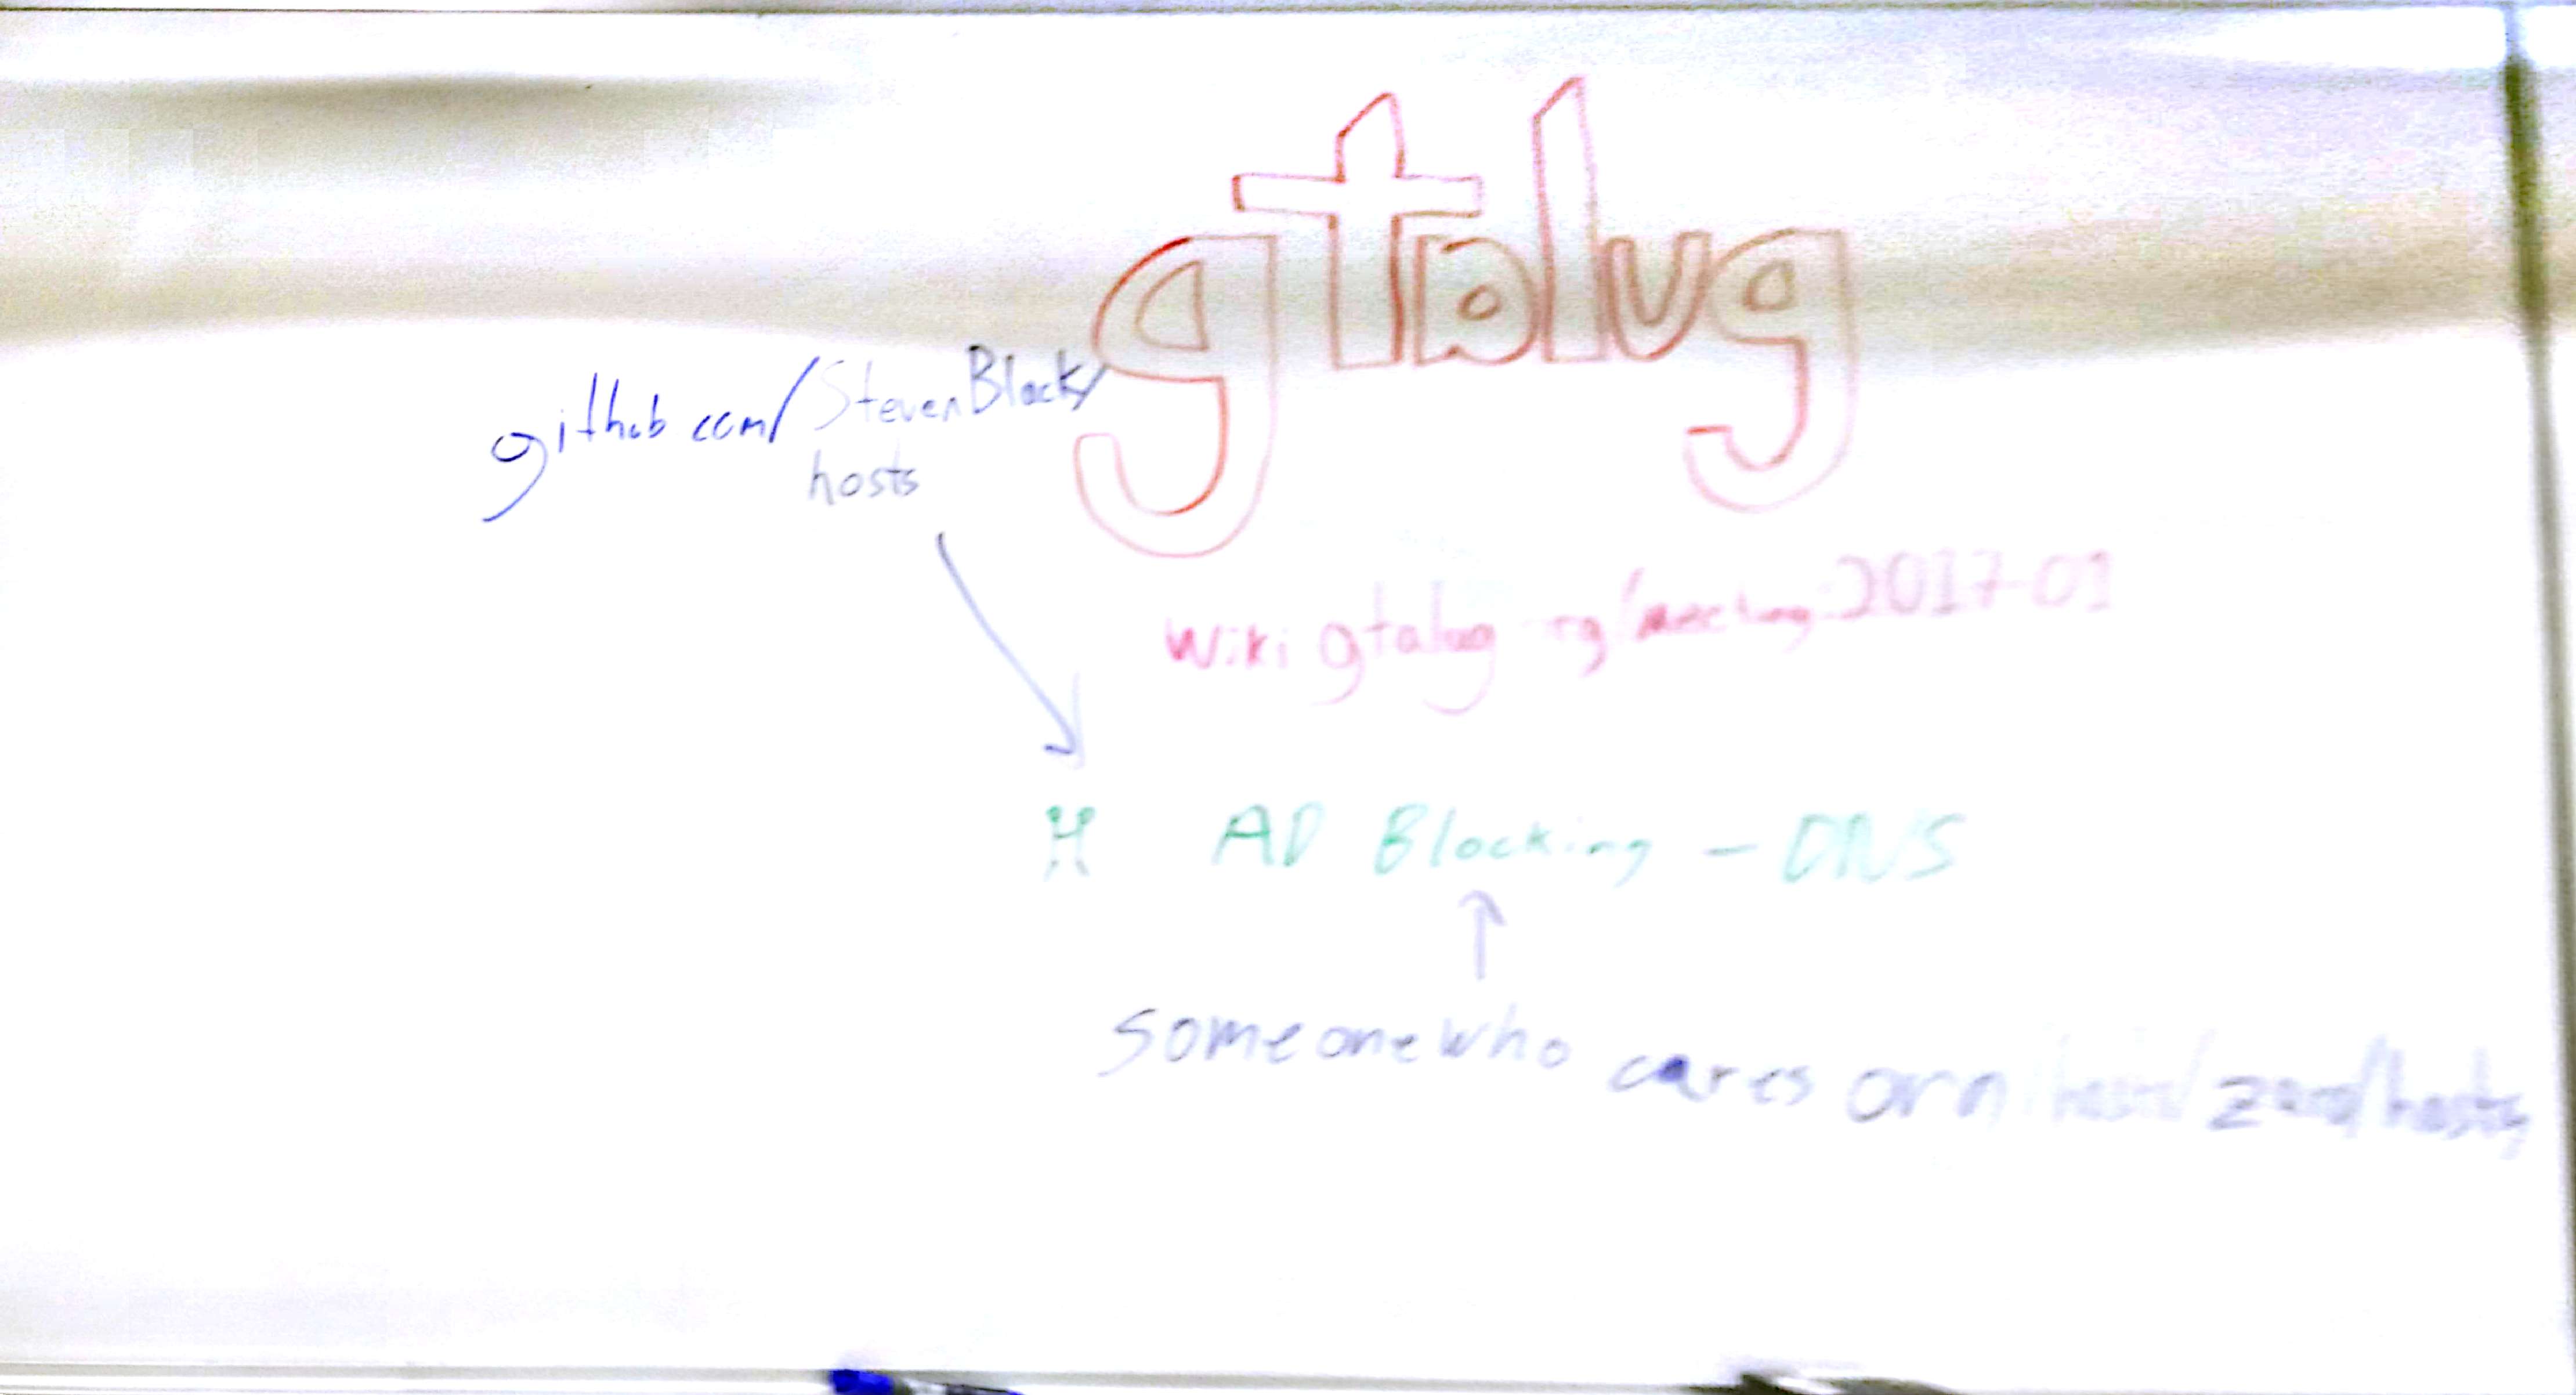 gtalug
github.com/StevenBlack/
hosts
wiki gtalug rg/meeting:2017-01
H AD Blocking - DNS
someonewho cares orn/hosts/zero/hosts